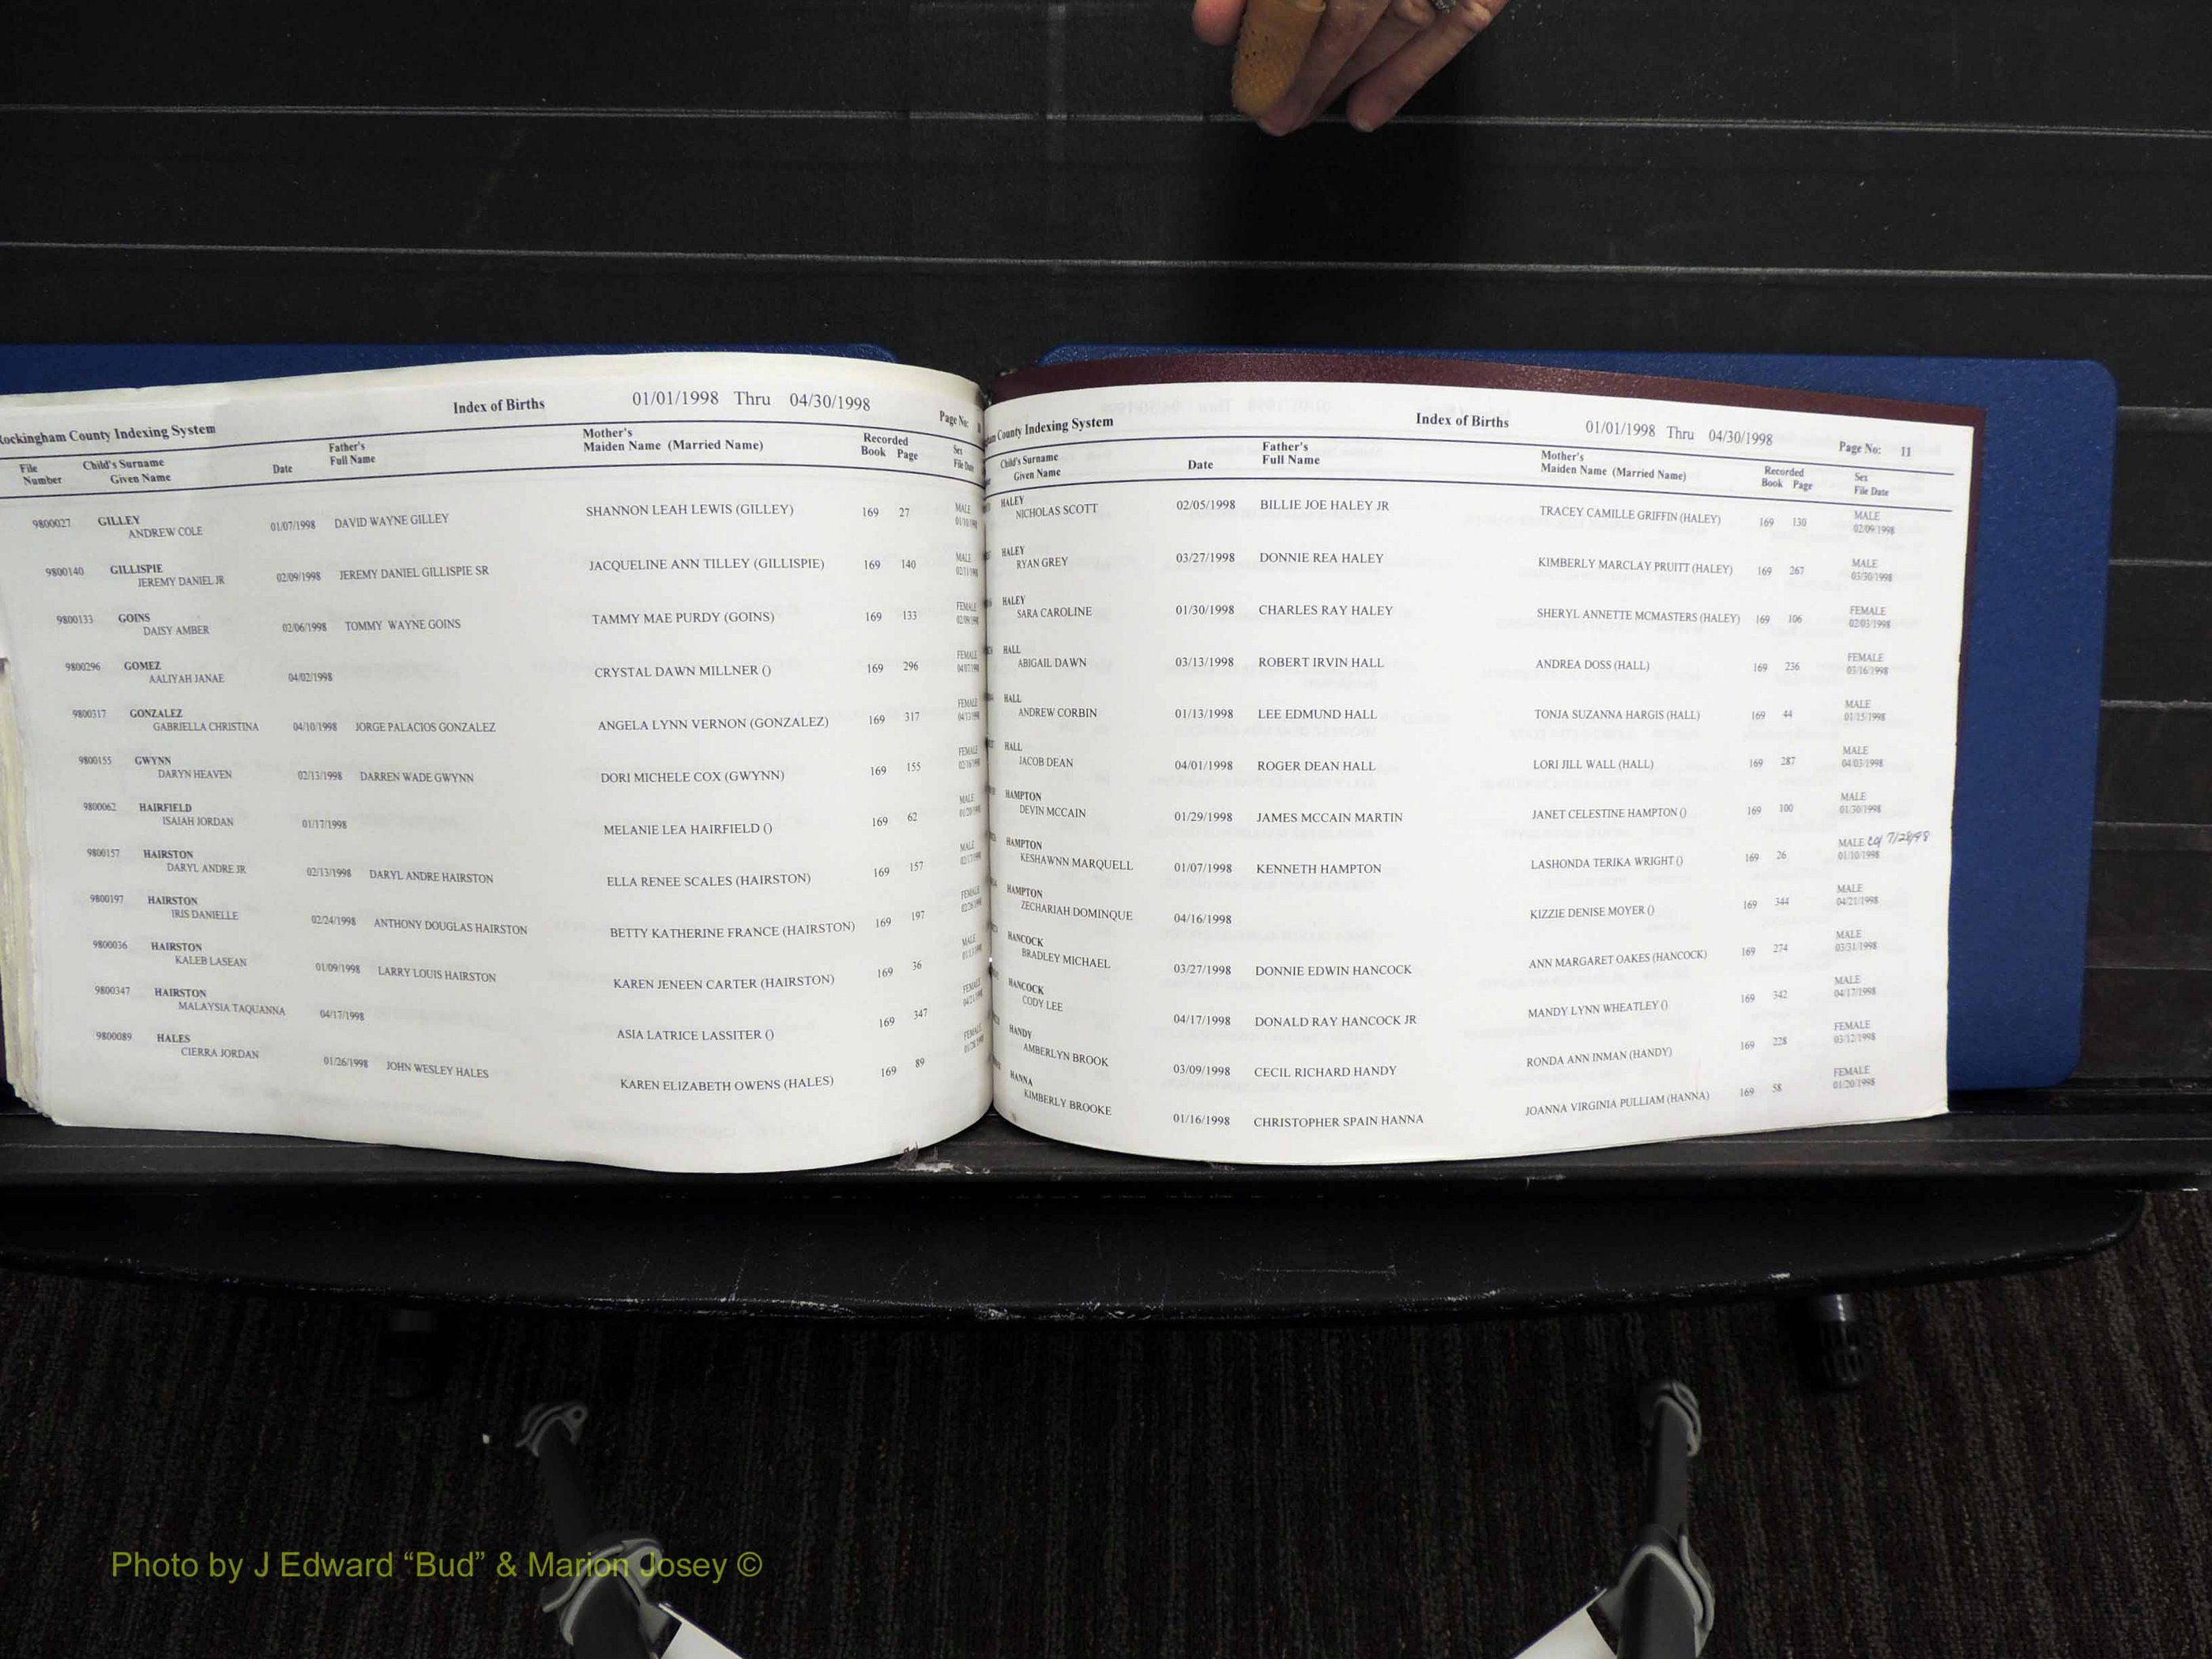 Rockingham County Indexing System Index of Births 01/01/1998 Thru 04/30/1998 Page No:
File Number Child's Surname Given Name Date Father's Full Name Mother's Maiden Name (Married Name) Recorded Book Page Sex File Date
9800027 GILLEY 01/07/1998 DAVID WAYNE GILLEY SHANNON LEAH LEWIS (GILLEY) 169 27 MALE
ANDREW COLE 01/10/1998
9800140 GILLISPIE 02/09/1998 JEREMY DANIEL GILLISPIE SR JACQUELINE ANN TILLEY (GILLISPIE) 169 140 MALE
JEREMY DANIEL JR 02/11/1998
9800133 GOINS 02/06/1998 TOMMY WAYNE GOINS TAMMY MAE PURDY (GOINS) 169 133 FEMALE
DAISY AMBER 02/09/1998
9800296 GOMEZ 04/02/1998 CRYSTAL DAWN MILLNER () 169 296 FEMALE
AALIYAH JANAE 04/07/1998
9800317 GONZALEZ 04/10/1998 JORGE PALACIOS GONZALEZ ANGELA LYNN VERNON (GONZALEZ) 169 317 FEMALE
GABRIELLA CHRISTINA 04/13/1998
9800155 GWYNN 02/13/1998 DARREN WADE GWYNN DORI MICHELE COX (GWYNN) 169 155 FEMALE
DARYN HEAVEN 02/16/1998
9800062 HAIRFIELD 01/17/1998 MELANIE LEA HAIRFIELD () 169 62 MALE
ISAIAH JORDAN 01/20/1998
9800157 HAIRSTON 02/13/1998 DARYL ANDRE HAIRSTON ELLA RENEE SCALES (HAIRSTON) 169 157 MALE
DARYL ANDRE JR 02/17/1998
9800197 HAIRSTON 02/24/1998 ANTHONY DOUGLAS HAIRSTON BETTY KATHERINE FRANCE (HAIRSTON) 169 197 FEMALE
IRIS DANIELLE 02/26/1998
9800036 HAIRSTON 01/09/1998 LARRY LOUIS HAIRSTON KAREN JENEEN CARTER (HAIRSTON) 169 36 MALE
KALEB LASEAN 01/13/1998
9800347 HAIRSTON 04/17/1998 ASIA LATRICE LASSITER () 169 347 FEMALE
MALAYSIA TAQUANNA 04/21/1998
9800089 HALES 01/26/1998 JOHN WESLEY HALES KAREN ELIZABETH OWENS (HALES) 169 89 FEMALE
CIERRA JORDAN 01/28/1998
County Indexing System Index of Births 01/01/1998 Thru 04/30/1998 Page No: 11
Child's Surname Given Name Date Father's Full Name Mother's Maiden Name (Married Name) Recorded Book Page Sex File Date
HALEY 02/05/1998 BILLIE JOE HALEY JR TRACEY CAMILLE GRIFFIN (HALEY) 169 130 MALE
NICHOLAS SCOTT 02/09/1998
HALEY 03/27/1998 DONNIE REA HALEY KIMBERLY MARCLAY PRUITT (HALEY) 169 267 MALE
RYAN GREY 03/30/1998
HALEY 01/30/1998 CHARLES RAY HALEY SHERYL ANNETTE MCMASTERS (HALEY) 169 106 FEMALE
SARA CAROLINE 02/03/1998
HALL 03/13/1998 ROBERT IRVIN HALL ANDREA DOSS (HALL) 169 236 FEMALE
ABIGAIL DAWN 03/16/1998
HALL 01/13/1998 LEE EDMUND HALL TONJA SUZANNA HARGIS (HALL) 169 44 MALE
ANDREW CORBIN 01/15/1998
HALL 04/01/1998 ROGER DEAN HALL LORI JILL WALL (HALL) 169 287 MALE
JACOB DEAN 04/03/1998
HAMPTON 01/29/1998 JAMES MCCAIN MARTIN JANET CELESTINE HAMPTON () 169 100 MALE
DEVIN MCCAIN 01/30/1998
HAMPTON 01/07/1998 KENNETH HAMPTON LASHONDA TERIKA WRIGHT () 169 26 MALE 7/28/98
KESHAWNN MARQUELL 01/10/1998
HAMPTON 04/16/1998 KIZZIE DENISE MOYER () 169 344 MALE
ZECHARIAH DOMINQUE 04/21/1998
HANCOCK 03/27/1998 DONNIE EDWIN HANCOCK ANN MARGARET OAKES (HANCOCK) 169 274 MALE
BRADLEY MICHAEL 03/31/1998
HANCOCK 04/17/1998 DONALD RAY HANCOCK JR MANDY LYNN WHEATLEY () 169 342 MALE
CODY LEE 04/17/1998
HANDY 03/09/1998 CECIL RICHARD HANDY RONDA ANN INMAN (HANDY) 169 228 FEMALE
AMBERLYN BROOK 03/12/1998
HANNA 01/16/1998 CHRISTOPHER SPAIN HANNA JOANNA VIRGINIA PULLIAM (HANNA) 169 58 FEMALE
KIMBERLY BROOKE 01/20/1998
Photo by J Edward “Bud” & Marion Josey ©